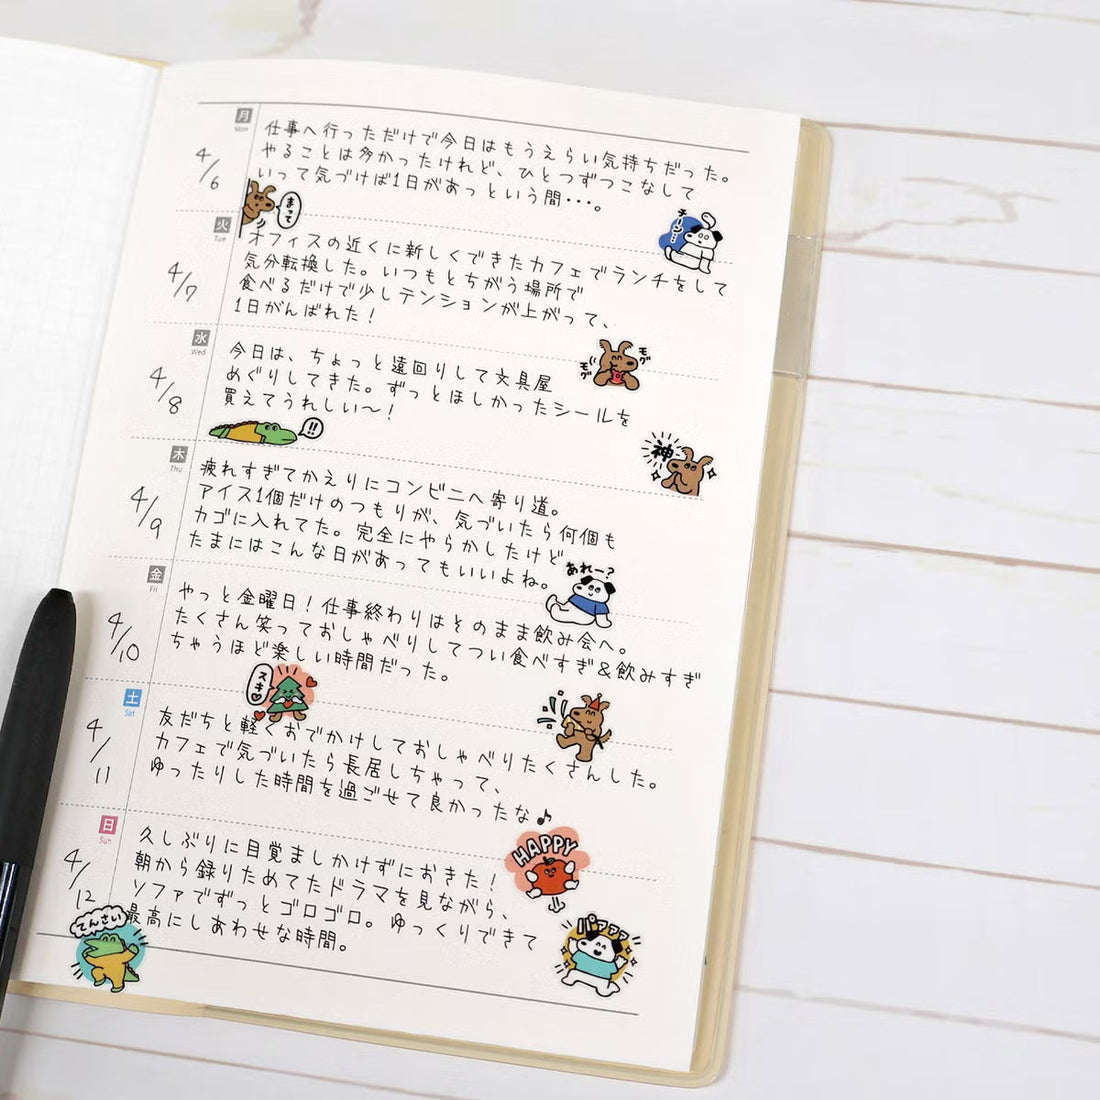 月
Mon
4/6
仕事へ行っただけで今日はもうえらい気持ちだった。
やることは多かったけれど、ひとつずつこなして
いって気づけば1日があっという間・・・。
まって
チーン…
火
Tue
4/7
オフィスの近くに新しくできたカフェでランチをして
気分転換した。いつもとちがう場所で
食べるだけで少しテンションが上がって、
1日がんばれた！
モグ
モグ
水
Wed
4/8
今日は、ちょっと遠回りして文具屋
めぐりしてきた。ずっとほしかったシールを
買えてうれしい〜！
!!
神
木
Thu
4/9
疲れすぎてかえりにコンビニへ寄り道。
アイス1個だけのつもりが、気づいたら何個も
カゴに入れてた。完全にやらかしたけど
たまにはこんな日があってもいいよね。
あれー？
金
Fri
4/10
やっと金曜日！仕事終わりはそのまま飲み会へ。
たくさん笑っておしゃべりしてつい食べすぎ＆飲みすぎ
ちゃうほど楽しい時間だった。
スキ♡
土
Sat
4/11
友だちと軽くおでかけしておしゃべりたくさんした。
カフェで気づいたら長居しちゃって、
ゆったりした時間を過ごせて良かったな♪
HAPPY
日
Sun
4/12
久しぶりに目覚ましかけずにおきた！
朝から録りためてたドラマを見ながら、
ソファでずっとゴロゴロ。ゆっくりできて
最高にしあわせな時間。
てんさい
パァァァ